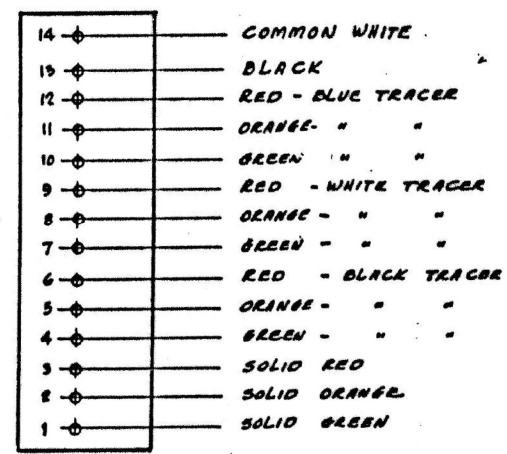 14 COMMON WHITE
13 BLACK
12 RED - BLUE TRACER
11 ORANGE- " "
10 GREEN " "
9 RED - WHITE TRACER
8 ORANGE - " "
7 GREEN - " "
6 RED - BLACK TRACER
5 ORANGE - " "
4 GREEN - " "
3 SOLID RED
2 SOLID ORANGE
1 SOLID GREEN